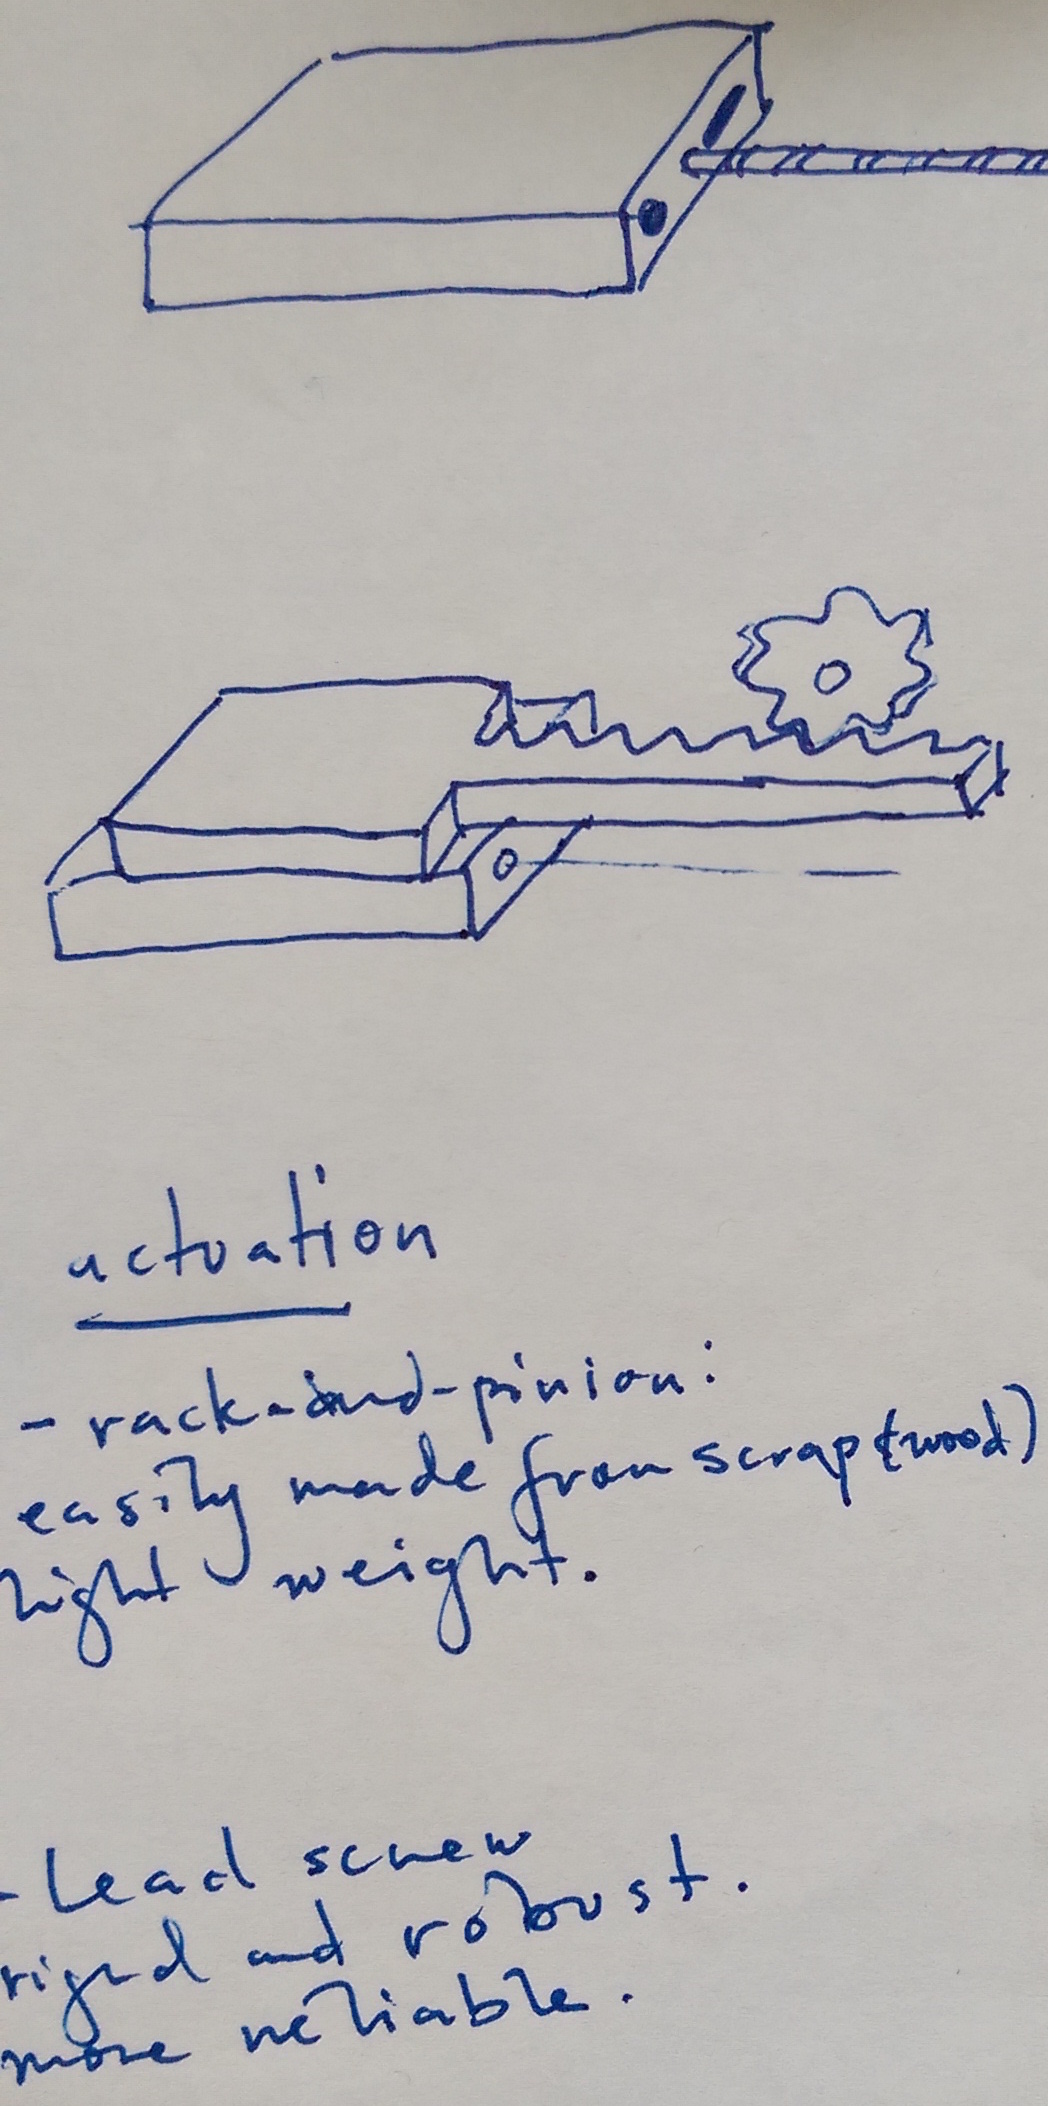 actuation
- rack-and-pinion:
easily made from scrap (wood)
light weight.
- Lead screw
rigid and robust.
more reliable.